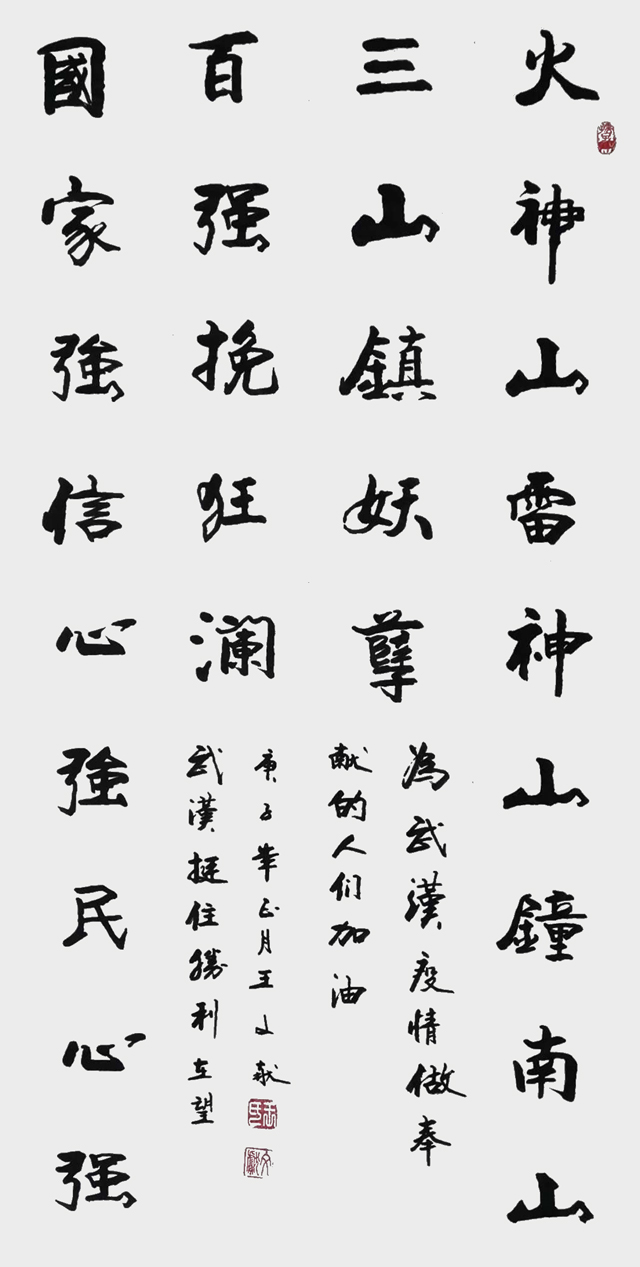 火神山雷神山鐘南山
三山鎮妖孽
百强挽狂澜
國家強信心強民心强
為武漢疫情做奉
献的人们加油
庚子年正月王文献
武漢挺住勝利在望